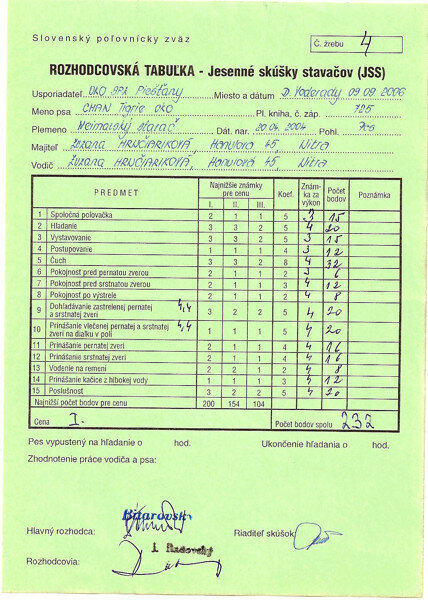 Slovenský poľovnícky zväz
Č. žrebu 4
ROZHODCOVSKÁ TABUĽKA - Jesenné skúšky stavačov (JSS)
Usporiadateľ OKO SPZ Piešťany Miesto a dátum D. Voderady 09.09.2006
Meno psa CHAN Tigrie oko Pl. kniha, č. záp. 725
Plemeno Weimarský stavač Dát. nar. 20.04.2004 Pohl. pes
Majiteľ Zuzana HRNČIARIKOVÁ, Hanulova 45, Nitra
Vodič Zuzana HRNČIARIKOVÁ, Hanulova 45, Nitra
PREDMET Najnižšie známky pre cenu I. II. III. Koef. Známka za výkon Počet bodov Poznámka
1 Spoločná poľovačka 2 1 1 5 3 15
2 Hľadanie 3 3 2 5 4 20
3 Vystavovanie 3 3 2 5 3 15
4 Postupovanie 1 1 1 3 4 12
5 Čuch 3 3 2 8 4 32
6 Pokojnosť pred pernatou zverou 2 1 1 2 3 6
7 Pokojnosť pred srstnatou zverou 2 1 1 3 4 12
8 Pokojnosť po výstrele 2 1 1 2 4 8
9 Dohľadávanie zastrelenej pernatej a srstnatej zveri 4,4 3 2 2 5 4 20
10 Prinášanie vlečenej pernatej a srstnatej zveri na diaľku v poli 4,4 1 1 1 5 4 20
11 Prinášanie pernatej zveri 2 1 1 4 4 16
12 Prinášanie srstnatej zveri 2 1 1 4 4 16
13 Vodenie na remeni 2 1 1 2 4 8
14 Prinášanie kačice z hlbokej vody 1 1 1 3 4 12
15 Poslušnosť 3 2 2 5 4 20
Najnižší počet bodov pre cenu 200 154 104
Cena I. Počet bodov spolu 232
Pes vypustený na hľadanie o hod. Ukončenie hľadania o hod.
Zhodnotenie práce vodiča a psa:
Bitarovsk
Hlavný rozhodca: Riaditeľ skúšok
Radovský
Rozhodcovia: